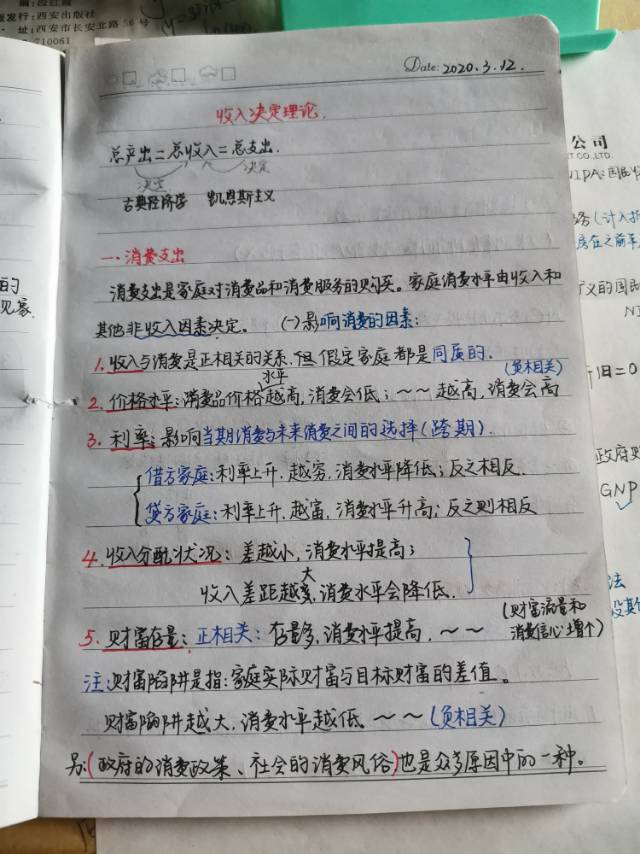 发行：西安出版社
址：西安市长安北路56号
710061
Date: 2020.3.12.
收入决定理论.
总产出=总收入=总支出.
决定 决定
古典经济学 凯恩斯主义
一.消费支出
消费支出是家庭对消费品和消费服务的购买。家庭消费水平由收入和
其他非收入因素决定。 (一)影响消费的因素:
1.收入与消费是正相关的关系,但假定家庭都是同质的.
(负相关)
2.价格水平:消费品价格水平越高,消费会低;～～越高,消费会高
3.利率:影响当期消费与未来消费之间的选择(跨期).
借方家庭:利率上升,越穷,消费水平降低;反之相反.
贷方家庭:利率上升,越富,消费水平升高;反之则相反
4.收入分配状况:差越小,消费水平提高;
收入差距越大,消费水平会降低.
5.财富存量:正相关:存量多,消费水平提高,～～(财富流量和
消费信心增个)
注:财富陷阱是指:家庭实际财富与目标财富的差值。
财富陷阱越大,消费水平越低～～(负相关)
另:(政府的消费政策、社会的消费风俗)也是众多原因中的一种。
的
见家.
公司
CO.,LTD.
NIPA:国民
(计入
广义的国民
NI
旧=0
政府购
GNP
法